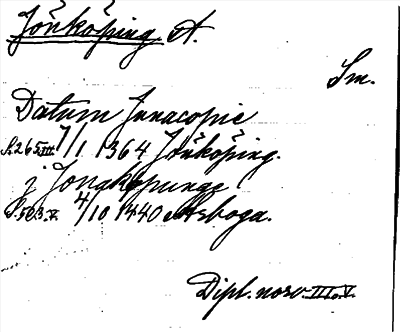 Jönköping A.
Sm.
Datum Junacopie
S. 265.III. 7/1 1364 Jönköping.
j Jonakøpunge
S. 563.V. 4/10 1440 Arboga.
Dipl. norv. III o. V.